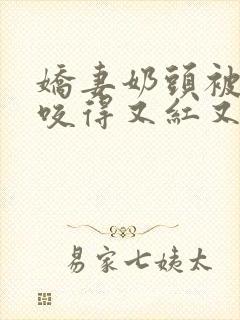 嬌妻奶頭被
咬得又紅又
易家七姨太